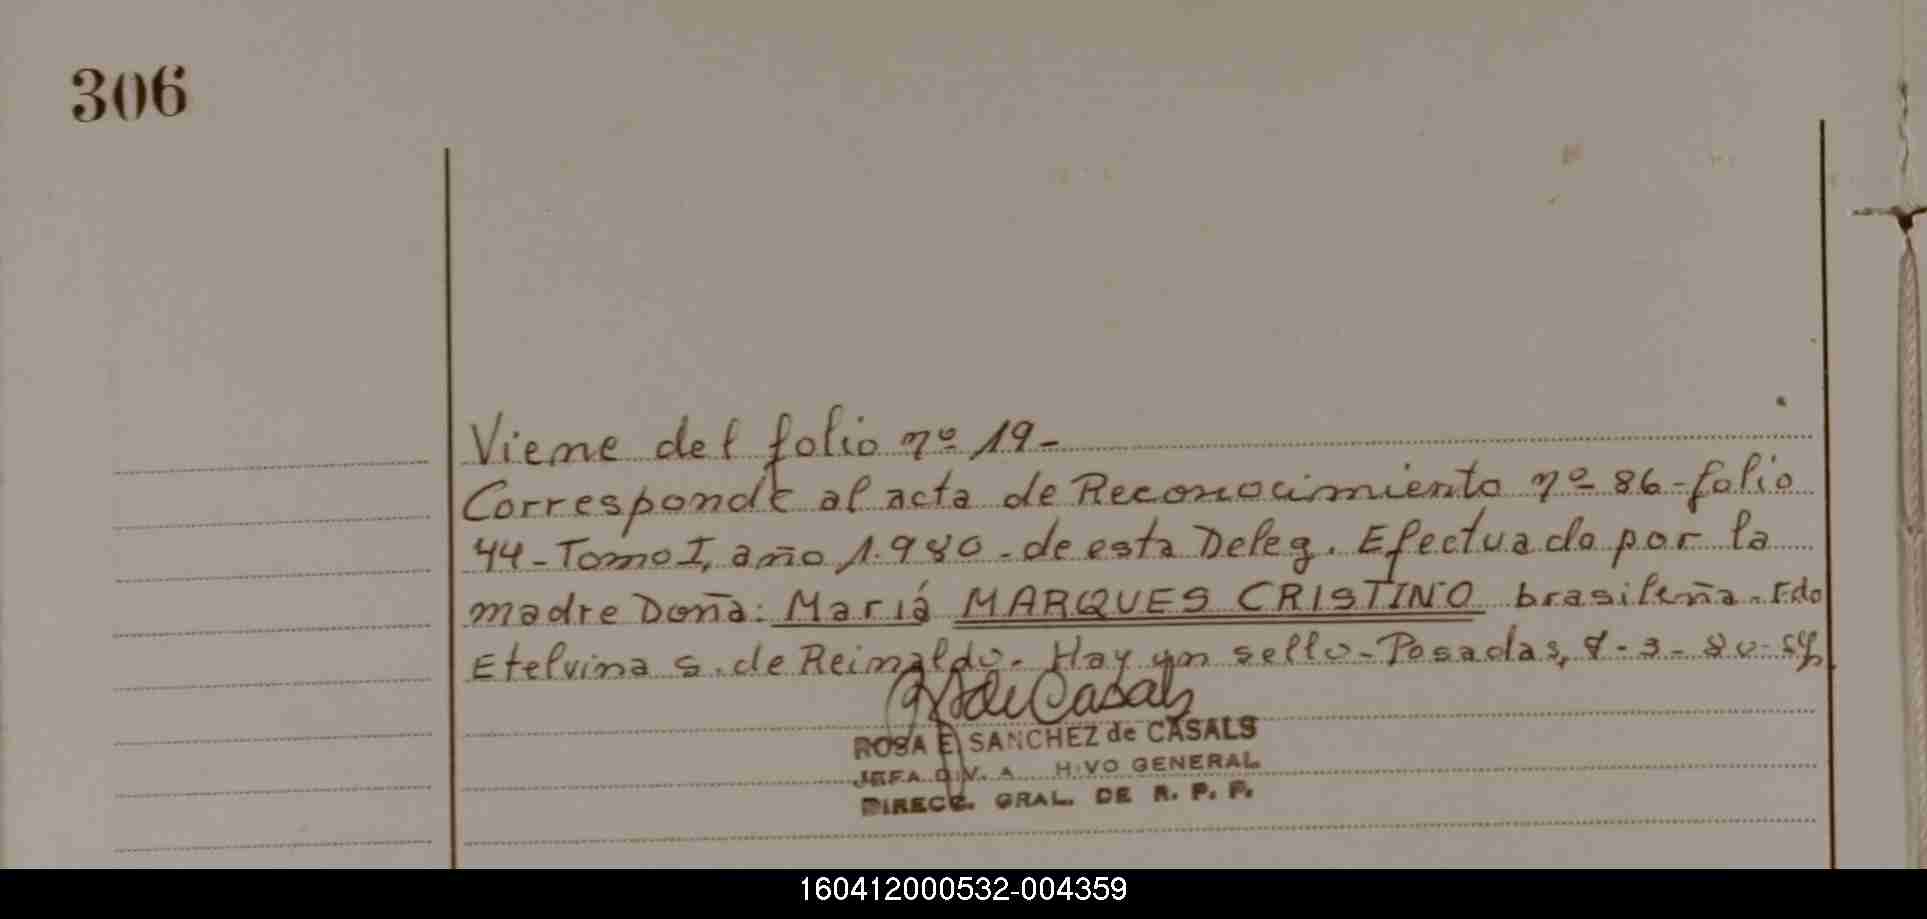 306
Viene del folio nº 19-
Corresponde al acta de Reconocimiento nº 86-folio
44-Tomo I, año 1.980-de esta Deleg. Efectuado por la
madre Doña: Mariá MARQUES CRISTINO brasileña. Fdo
Etelvina S. de Reinaldo. Hay un sello-Posadas, 8-3-80-
de Casals
ROSA E. SANCHEZ de CASALS
JEFA DIV. A HIVO GENERAL
DIRECC. GRAL. DE R. P. P.
160412000532-004359